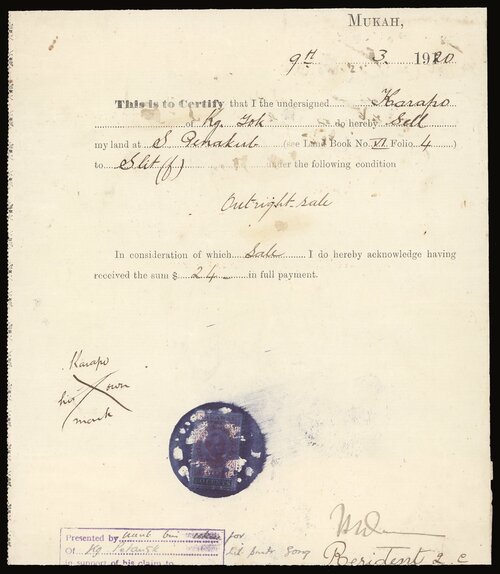 MUKAH,
9th 3. 1920
This is to Certify that I the undersigned Karapo
of Kg. Toh do hereby Sell
my land at S Penakub (see Land Book No. VI Folio 4)
to Slit (f) under the following condition
Outright sale
In consideration of which Sale I do hereby acknowledge having
received the sum $ 24 - in full payment.
Karapo
his own
mark
Presented by for
Of Kg
in support of his claim to
Resident 2. c